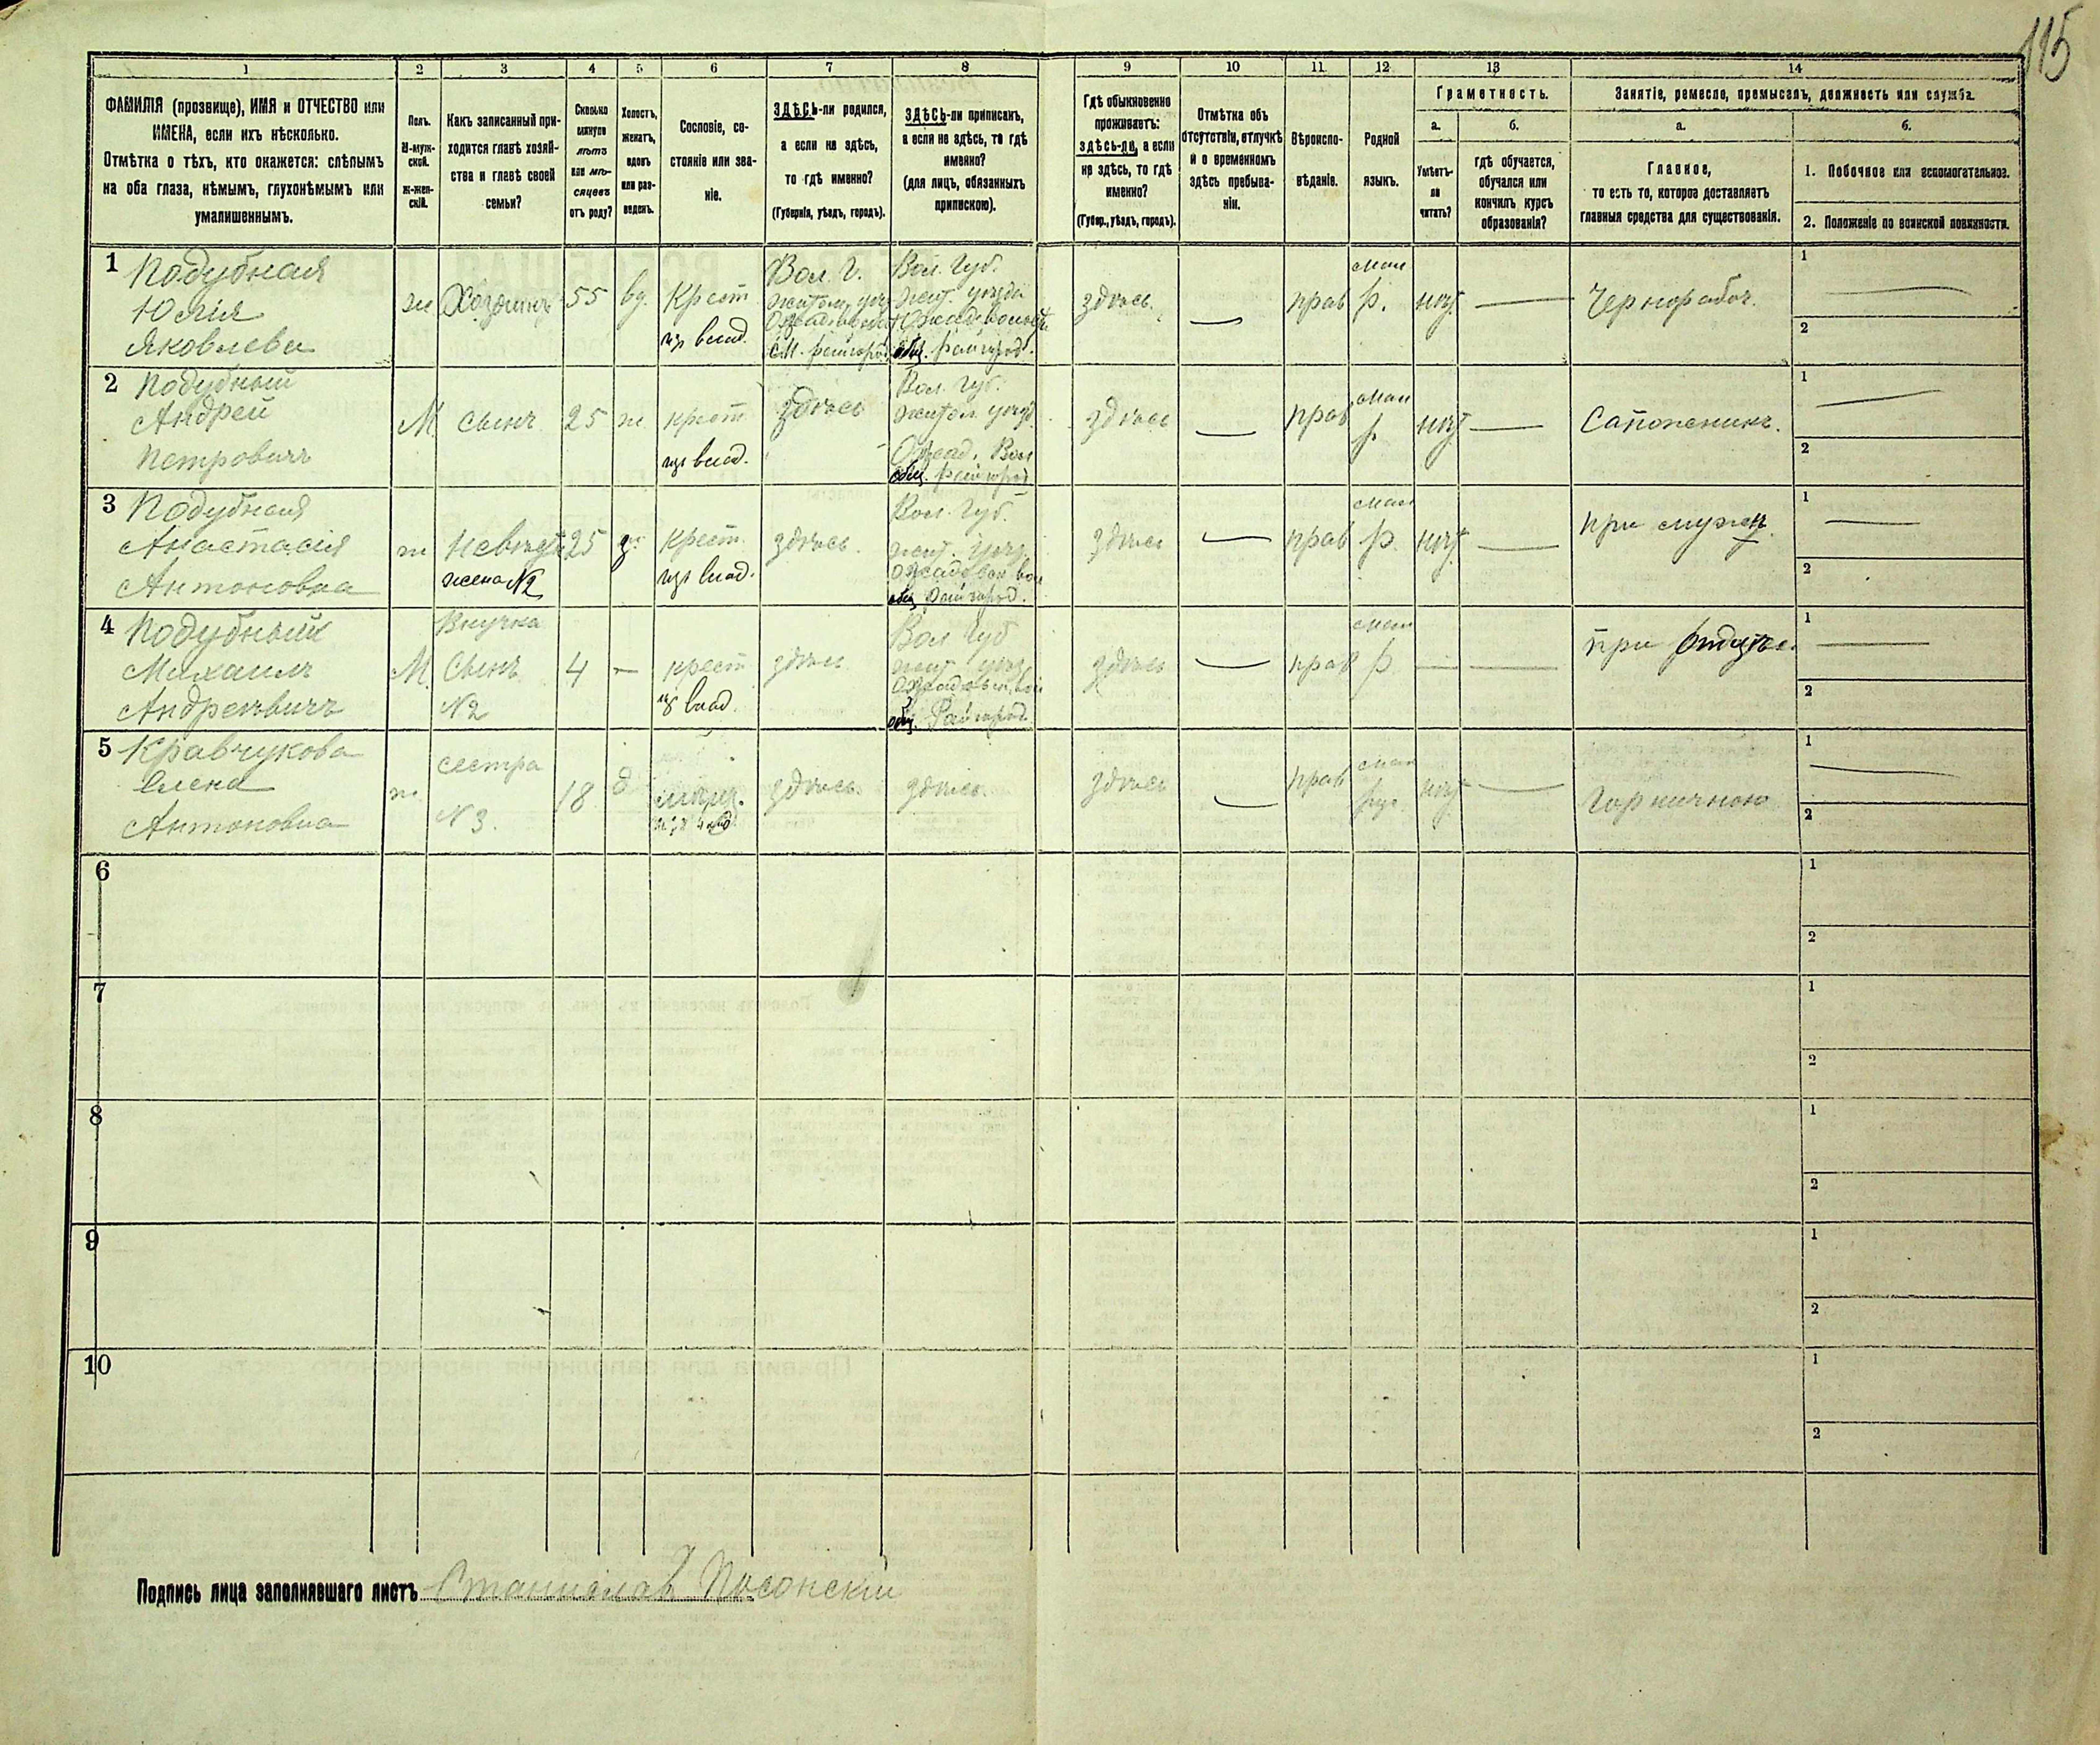 115
1 2 3 4 5 6 7 8 9 10 11 12 13 14
ФАМИЛІЯ (прозвище), ИМЯ и ОТЧЕСТВО или
ИМЕНА, если ихъ нѣсколько.
Отмѣтка о тѣхъ, кто окажется: слѣпымъ
на оба глаза, нѣмымъ, глухонѣмымъ или
умалишеннымъ.
Полъ.
М-муж-
ской.
Ж-жен-
скій.
Какъ записанный при-
ходится главѣ хозяй-
ства и главѣ своей
семьи?
Сколько
минуло
лѣтъ
или мѣ-
сяцевъ
отъ роду?
Холостъ,
женатъ,
вдовъ
или раз-
веденъ.
Сословіе, со-
стояніе или зва-
ніе.
ЗДѢСЬ-ли родился,
а если не здѣсь,
то гдѣ именно?
(Губернія, уѣздъ, городъ).
ЗДѢСЬ-ли приписанъ,
а если не здѣсь, то гдѣ
именно?
(для лицъ, обязанныхъ
припискою).
Гдѣ обыкновенно
проживаетъ:
здѣсь-ли, а если
не здѣсь, то гдѣ
именно?
(Губер., уѣздъ, городъ).
Отмѣтка объ
отсутствіи, отлучкѣ
и о временномъ
здѣсь пребыва-
ніи.
Вѣроиспо-
вѣданіе.
Родной
языкъ.
Грамотность.
а.
Умѣетъ-
ли
читать?
б.
гдѣ обучается,
обучался или
кончилъ курсъ
образованія?
Занятіе, ремесло, промыселъ, должность или служба.
а.
Главное,
то есть то, которое доставляетъ
главныя средства для существованія.
б.
1. Побочное или вспомогательное.
2. Положеніе по воинской повинности.
1
Подубная
Юлія
Яковлева
ж
Хозяинъ
55
вд.
Крест
изъ влад.
Вол. Г.
Вол. Губ.
жит. уѣзда
здѣсь.
прав
мал
р.
нѣт
Чернорабоч.
1
2
2
Подубный
Андрей
Петровичъ
М.
сынъ
25
ж
крест
изъ влад.
здѣсь
Вол. Губ.
житом. уѣзд.
общ. Райгород
здѣсь
прав
мал
р.
нѣт
Сапожникъ.
1
2
3
Подубная
Анастасія
Антоновна
ж
Невѣста
жена №2
25
з
крест.
изъ влад.
здѣсь.
Вол. Губ.
жит. уѣзд
общ Райгород.
здѣсь
прав
мал
р.
нѣт
при мужѣ
1
2
4
Подубный
Михаилъ
Андреевичъ
М.
Внучка
Сынъ
№2
4
крест
изъ влад.
здѣсь
Вол Губ
жит. уѣзд
общ. Райгород
здѣсь
прав
мал
р
при отцѣ
1
2
5
Кравчукова
Елена
Антоновна
ж
сестра
№3.
18
д
здѣсь
здѣсь
здѣсь
прав
мал
рус.
нѣт
Горничною
1
2
6
1
2
7
1
2
8
1
2
9
1
2
10
1
2
Подпись лица заполнявшаго листъ Станислав